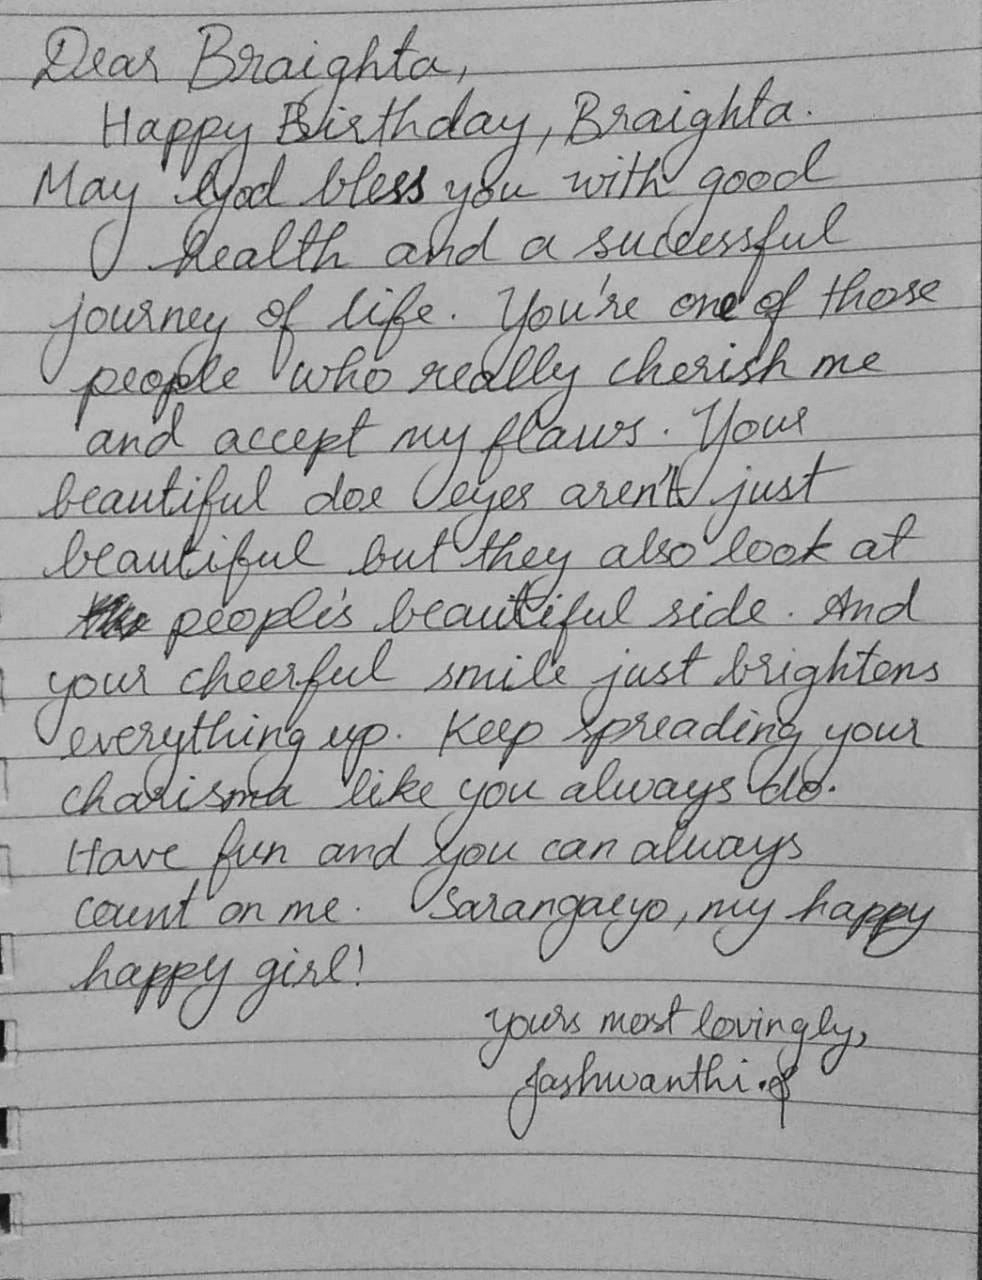 Dear Braighta,
Happy Birthday, Braighta.
May God bless you with good
health and a successful
journey of life. You're one of those
people who really cherish me
and accept my flaws. Your
beautiful doe eyes aren't just
beautiful but they also look at
people's beautiful side. And
your cheerful smile just brightens
everything up. Keep spreading your
charisma like you always do.
Have fun and you can always
count on me. Sarangaeyo, my happy
happy girl!
yours most lovingly,
Jashwanthi.